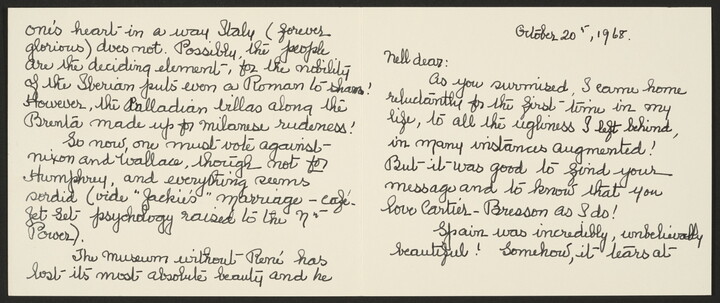 October 20th, 1968.
Nell dear:
As you surmised, I came home
reluctantly for the first time in my
life, to all the ugliness I left behind,
in many instances augmented!
But it was good to find your
message and to know that you
love Cartier-Bresson as I do!
Spain was incredibly, unbelievably
beautiful! Somehow, it tears at
one's heart in a way Italy (forever
glorious) does not. Possibly, the people
are the deciding element, for the nobility
of the Iberian puts even a Roman to shame!
However, the Palladian villas along the
Brenta made up for Milanese rudeness!
So now, one must vote against
Nixon and Wallace, though not for
Humphrey, and everything seems
sordid (vide "Jackie's" marriage - café-
Jet-Set psychology raised to the Nth
Power).
The Museum without René has
lost its most absolute beauty and he